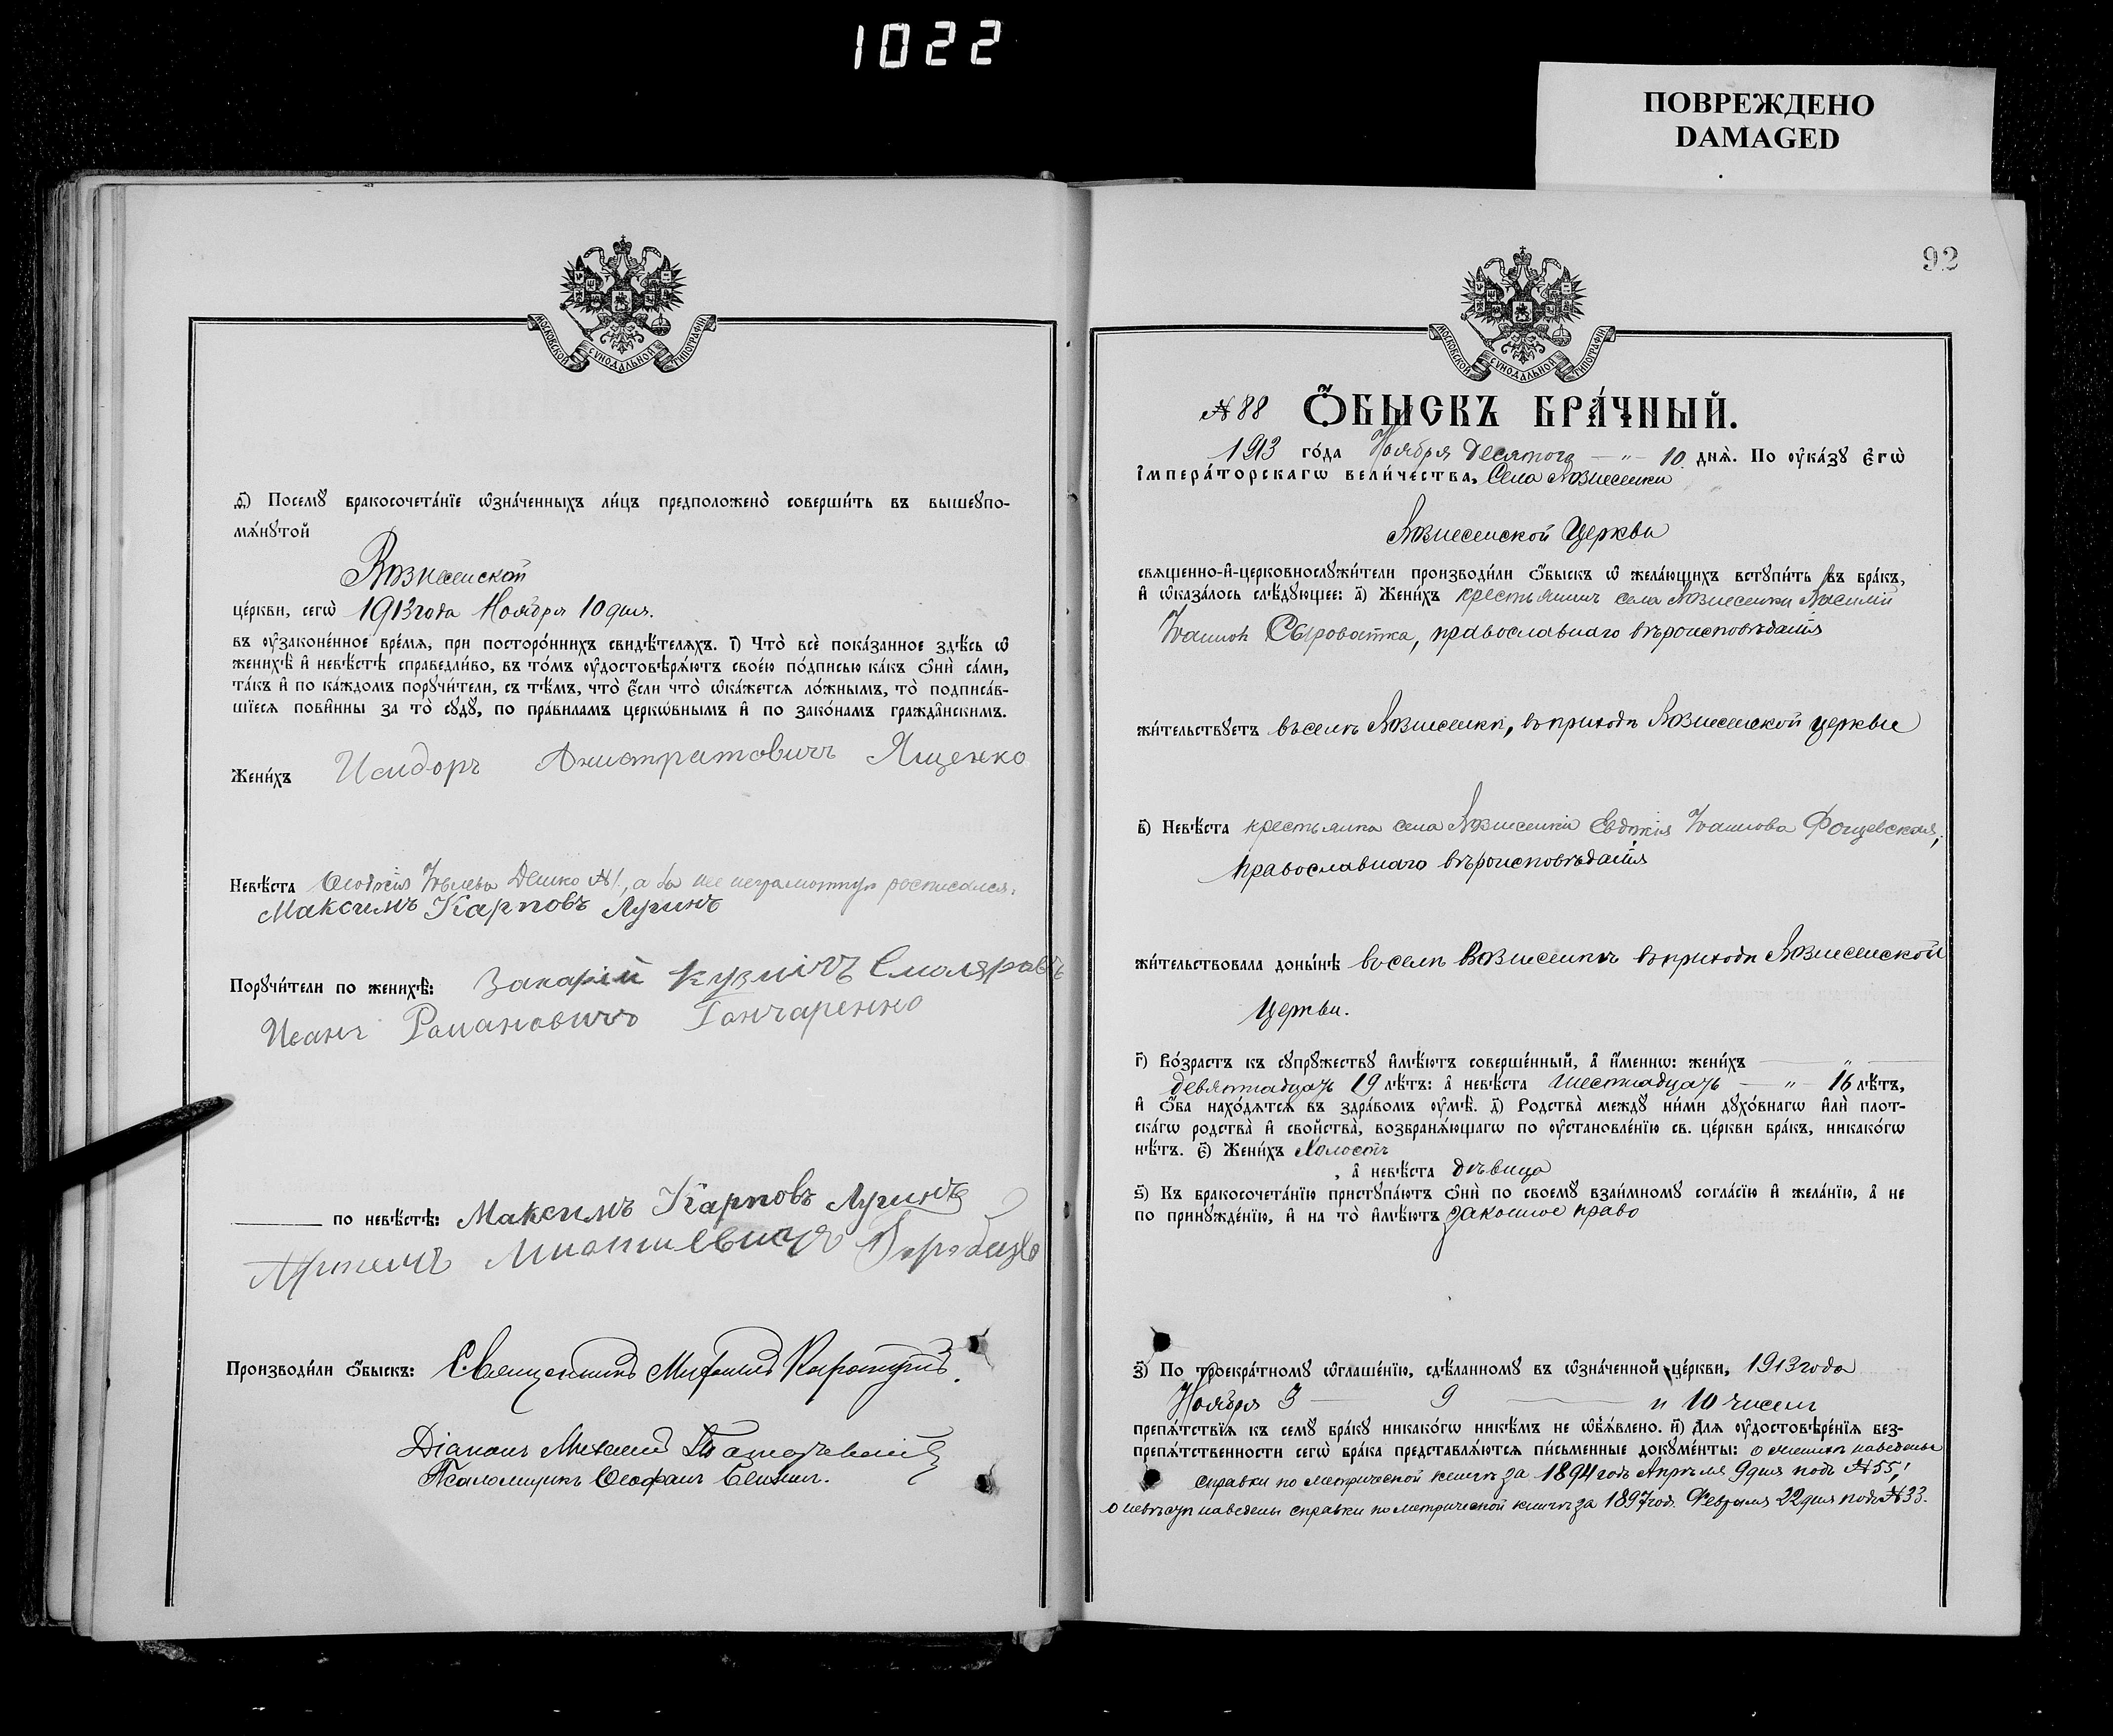 1022
ПОВРЕЖДЕНО
DAMAGED
МОСКОВСКОЙ СѴНОДАЛЬНОЙ ТИПОГРАФІИ
ѳ҃) Посемꙋ бракосочета́нїе ѡ҆зна́ченныхъ ли́цъ предположено̀ соверши́ть въ вышеꙋпо-
мѧ́нꙋтой
Вознесенской
це́ркви, сегѡ̀ 1913 года Ноября 10 дня.
въ ᲂу҆законе́нное вре́мѧ, при посторо́ннихъ свидѣ́телѧхъ. і҃) Что̀ всѐ пока́занное здѣ́сь ѡ҆
женихѣ̀ и҆ невѣ́стѣ справедли́во, въ то́мъ ᲂу҆достовѣрѧ́ютъ свое́ю по́дписью ка́къ ѻ҆нѝ са́ми,
та́къ и҆ по ка́ждомъ порꙋчи́тели, съ тѣ́мъ, что̀ є҆́сли что̀ ѡ҆ка́жетсѧ ло́жнымъ, то̀ подписа́в-
шїесѧ пови́нны за то̀ сꙋдꙋ̀, по пра́виламъ церкѡ́внымъ и҆ по зако́намъ гражда́нскимъ.
Жени́хъ Исидоръ Анистратовичъ Ященко
Невѣ́ста Ѳеодосія Демко а за нее неграмотную росписался.
Максимъ Карповъ Лугинъ
Порꙋчи́тели по женихѣ̀: Захарій Кузмичъ Смоляровъ
Иванъ Романовичъ Гончаренко
по невѣ́стѣ: Максимъ Карповъ Лугинъ
Производи́ли ѻ҆́быскъ: Священникъ
Діаконъ Михаилъ
Псаломщикъ Ѳеофанъ
92
МОСКОВСКОЙ СѴНОДАЛЬНОЙ ТИПОГРАФІИ
№ 88 Ѻ҆́БЫСКЪ БРА́ЧНЫЙ.
1913 го́да Ноября десятого — " — 10 днѧ̀. По ᲂу҆ка́зꙋ є҆гѡ̀
І҆мпера́торскагѡ вели́чества, Села Вознесенки
Вознесенской Церкви
свѧщенно-и҆-церковнослꙋжи́тели производи́ли ѻ҆́быскъ ѡ҆ жела́ющихъ встꙋпи́ть въ бра́къ,
и҆ ѡ҆каза́лось слѣ́дꙋющее: а҃) Жени́хъ крестьянинъ села Вознесенки Василій
Іоанновъ Сыроватка, православнаго вѣроисповѣданія
жи́тельствꙋетъ въ селѣ Вознесенкѣ, въ приходѣ Вознесенской церкви
в҃) Невѣ́ста крестьянка села Вознесенки Евдокія Іоаннова Фощевская,
православнаго вѣроисповѣданія
жи́тельствовала доны́нѣ въ селѣ Вознесенкѣ въ приходѣ Вознесенской
Церкви.
г҃) Во́зрастъ къ сꙋпрꙋ́жествꙋ и҆мѣ́ютъ соверше́нный, а҆ и҆́меннѡ: жени́хъ — " —
девятнадцать 19 лѣ́тъ: а҆ невѣ́ста шестнадцать — " — 16 лѣ́тъ,
и҆ ѻ҆́ба нахо́дѧтсѧ въ здра́вомъ ᲂу҆мѣ̀. д҃) Родства̀ междꙋ ни́ми дꙋхо́внагѡ и҆лѝ плот-
ска́гѡ родства̀ и҆ сво́йства, возбранѧ́ющагѡ по ᲂу҆становле́нїю св. це́ркви бра́къ, никако́гѡ
нѣ́тъ. є҃) Жени́хъ Холостъ
, а҆ невѣ́ста дѣвица
ѕ҃) Къ бракосочета́нїю пристꙋпа́ютъ ѻ҆нѝ по своемꙋ̀ взаи́мномꙋ согла́сїю и҆ жела́нїю, а҆ не
по принꙋжде́нїю, и҆ на то̀ и҆мѣ́ютъ законное право
з҃) По троекра́тномꙋ ѡ҆глаше́нїю, сдѣ́ланномꙋ въ ѡ҆зна́ченной це́ркви, 1913 года
Ноября 3 — 9 — и 10 чиселъ
препѧ́тствїѧ къ семꙋ̀ бра́кꙋ никако́гѡ никѣ́мъ не ѡ҆б̾ѧ́влено. и҃) Длѧ ᲂу҆достовѣре́нїѧ без-
препѧ́тственности сегѡ̀ бра́ка представлѧ́ютсѧ пи́сьменные докꙋме́нты: о женихѣ наведены
справки по метрической книгѣ за 1894 годъ Апрѣля 9 дня подъ № 55,
о невѣстѣ наведены справки по метрической книгѣ за 1897 год. Февраля 22 дня подъ № 33.